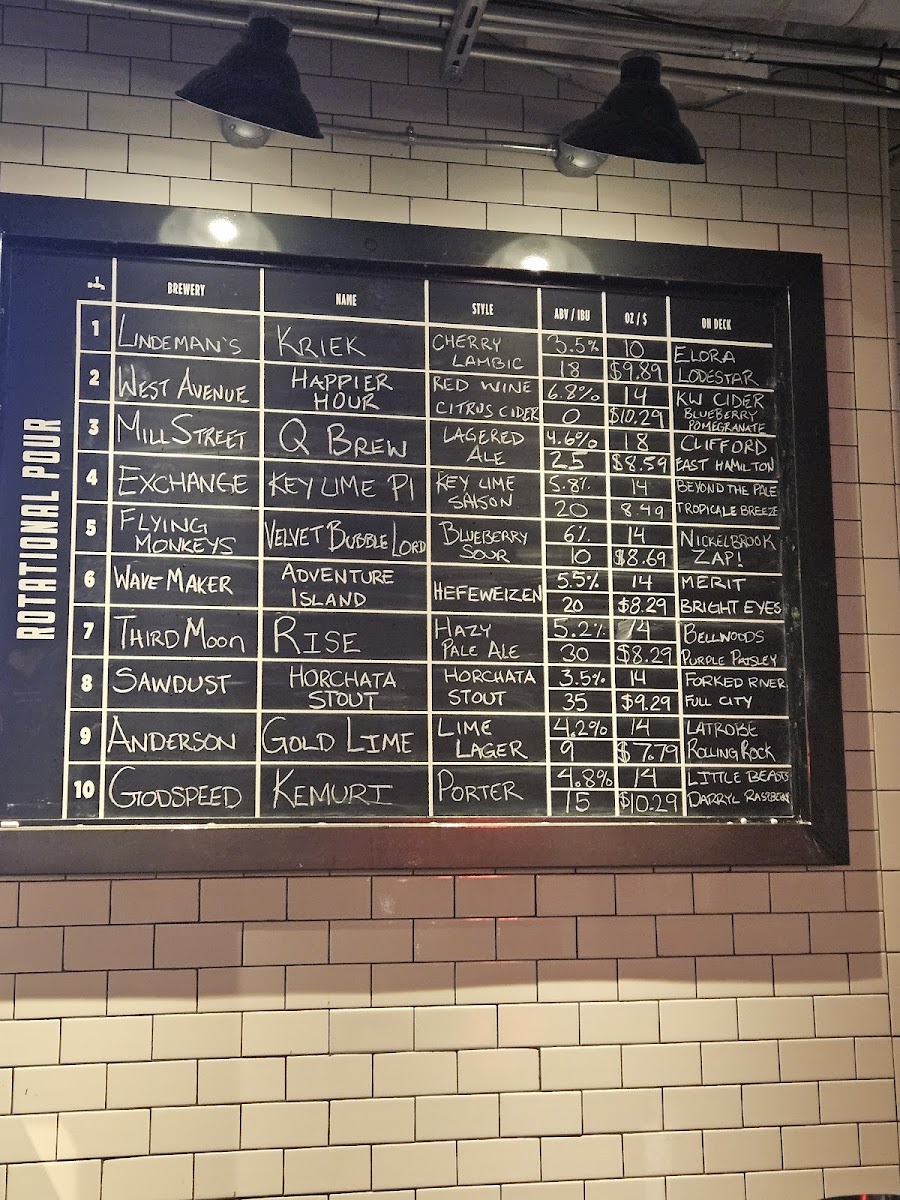 ROTATIONAL POUR
BREWERY NAME STYLE ABV / IBU OZ / $ ON DECK
1 LINDEMAN'S KRIEK CHERRY LAMBIC 3.5% 10 ELORA
18 $9.89 LODESTAR
2 WEST AVENUE HAPPIER HOUR RED WINE CITRUS CIDER 6.8% 14 KW CIDER
0 $10.29 BLUEBERRY POMEGRANATE
3 MILL STREET Q BREW LAGERED ALE 4.6% 18 CLIFFORD
25 $8.59 EAST HAMILTON
4 EXCHANGE KEY LIME PI KEY LIME SAISON 5.8% 14 BEYOND THE PALE
20 8.49 TROPICALE BREEZE
5 FLYING MONKEYS VELVET BUBBLE LORD BLUEBERRY SOUR 6% 14 NICKELBROOK
10 $8.69 ZAP!
6 WAVE MAKER ADVENTURE ISLAND HEFEWEIZEN 5.5% 14 MERIT
20 $8.29 BRIGHT EYES
7 THIRD MOON RISE HAZY PALE ALE 5.2% 14 BELLWOODS
30 $8.29 PURPLE PAISLEY
8 SAWDUST HORCHATA STOUT HORCHATA STOUT 3.5% 14 FORKED RIVER
35 $9.29 FULL CITY
9 ANDERSON GOLD LIME LIME LAGER 4.2% 14 LATROBE
9 $7.79 ROLLING ROCK
10 GODSPEED KEMURI PORTER 4.8% 14 LITTLE BEASTS
15 $10.29 DARRYL RASPBERRY